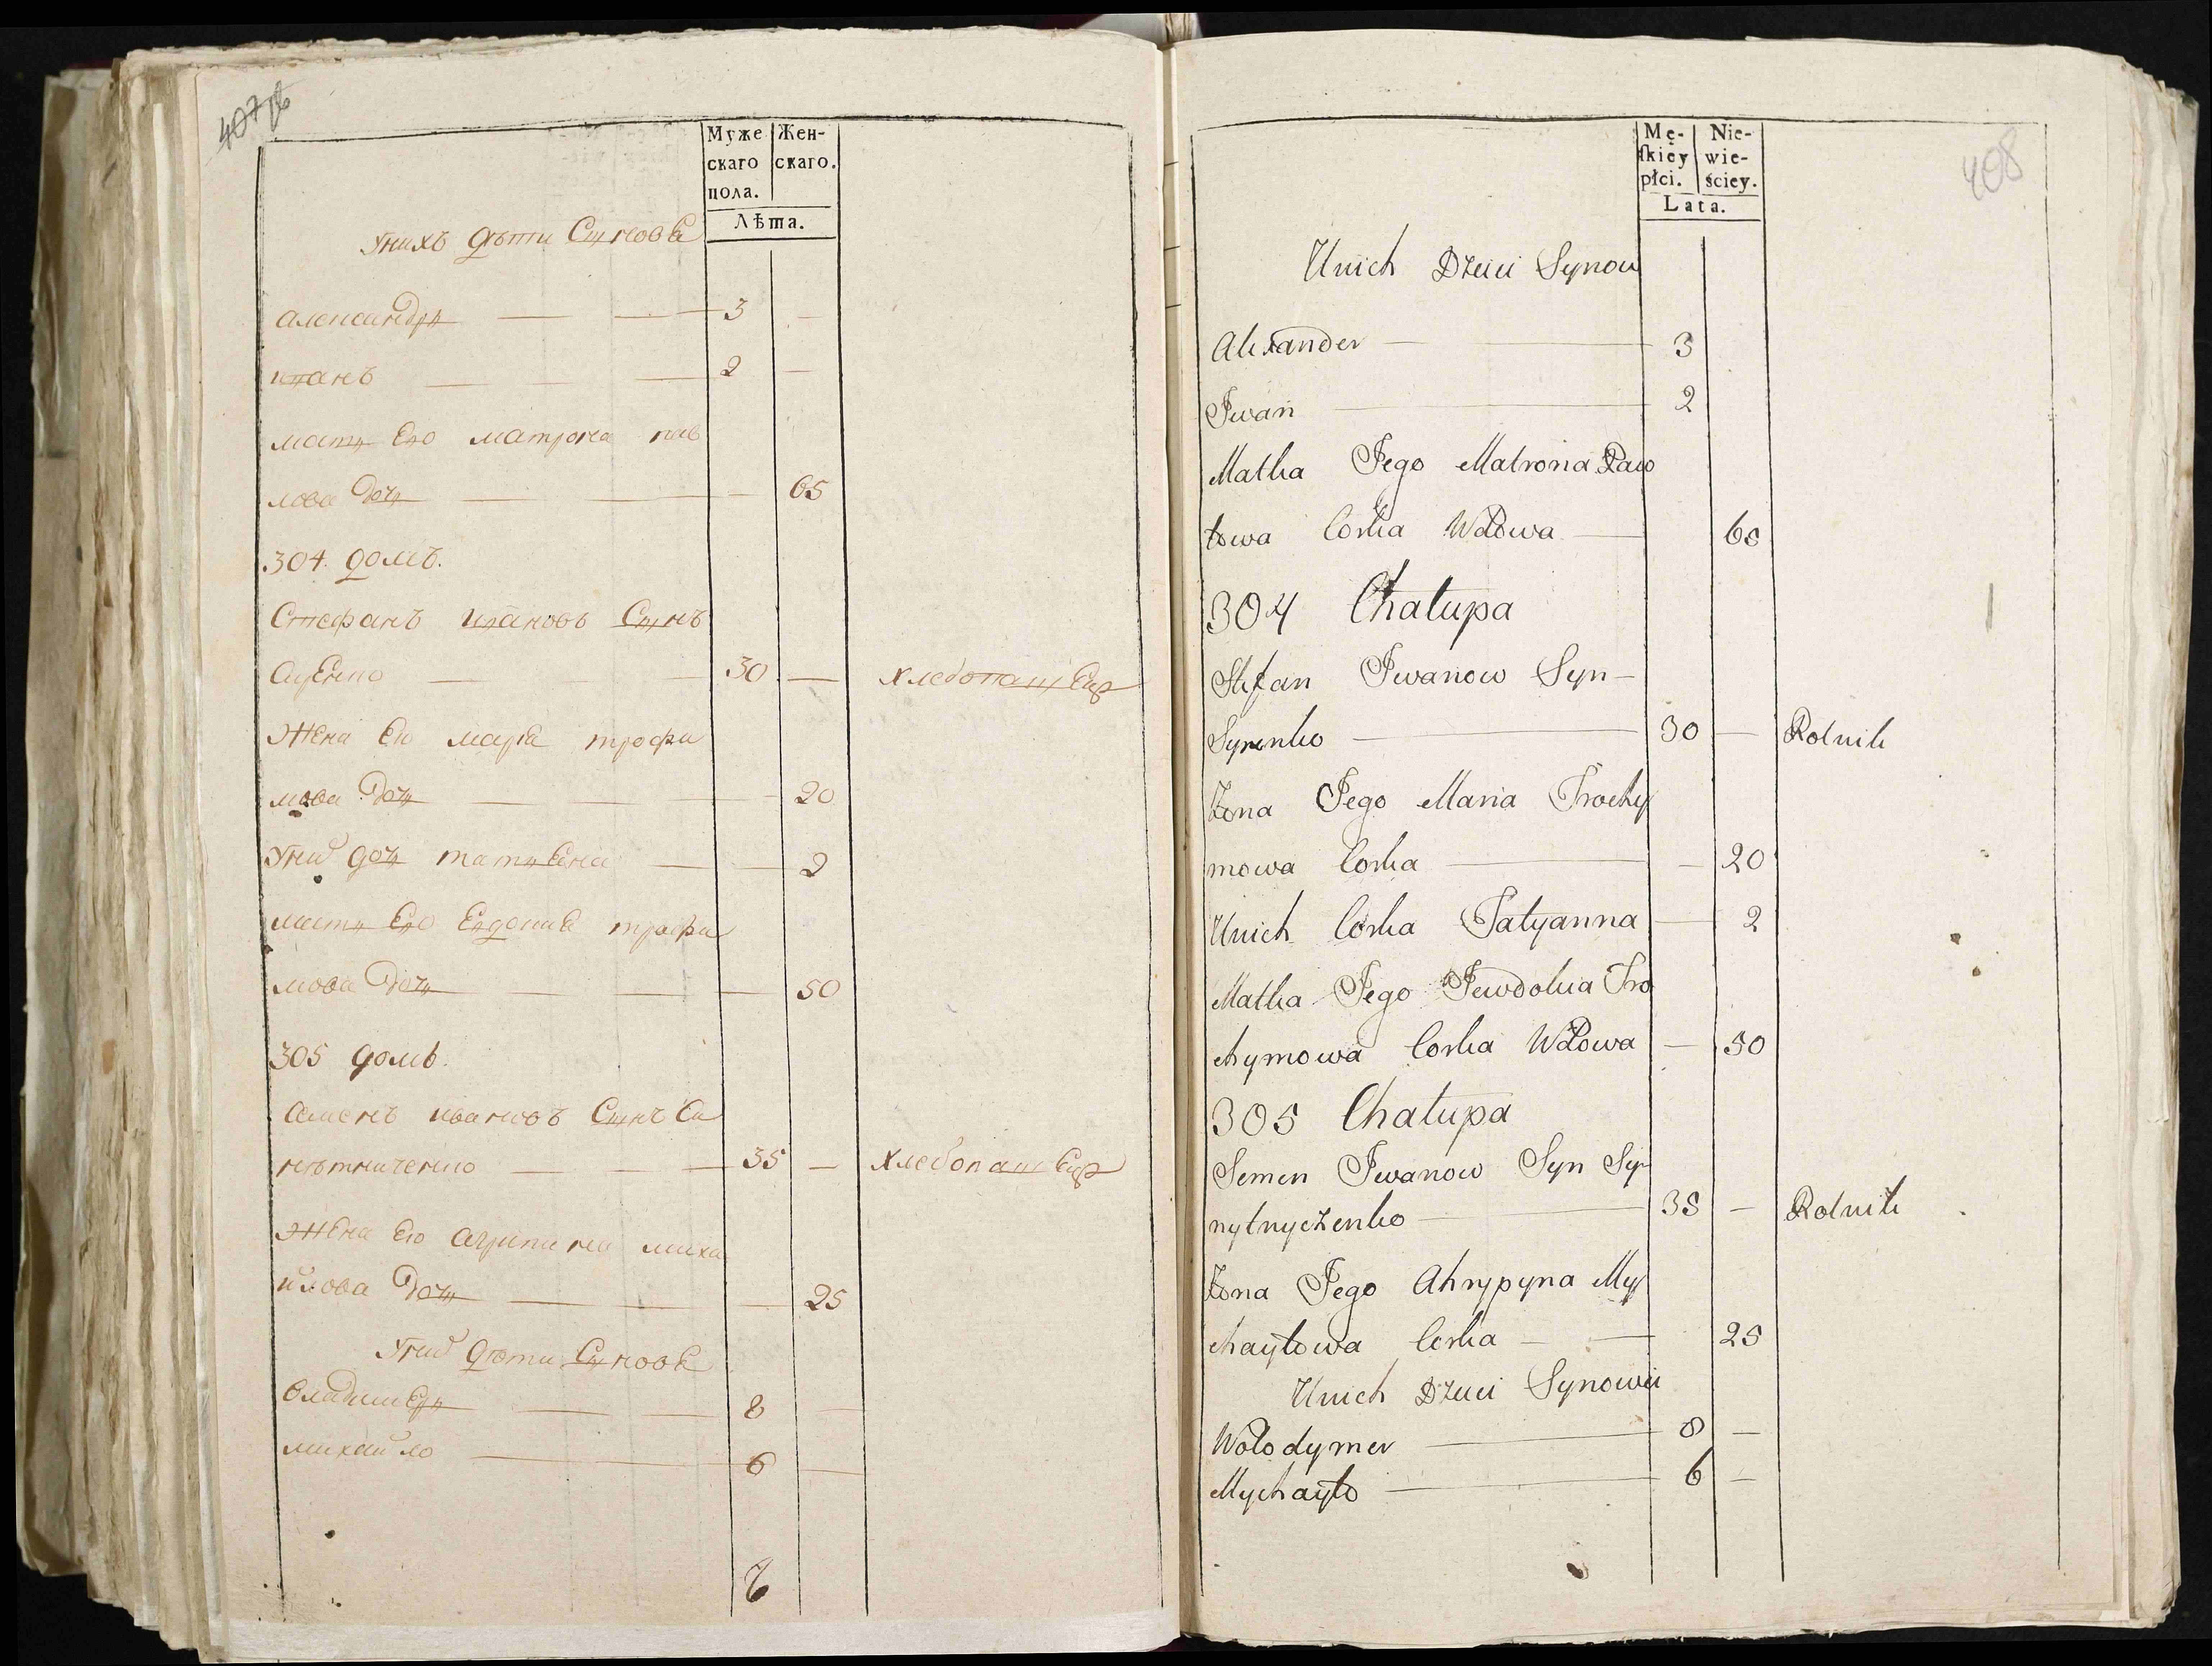 407 об
Муже
скаго
пола.
Жен-
скаго.
Лѣта.
Унихъ дѣти Сынове
Александръ 3 —
Иванъ 2 —
мать Его матрона пав
лова дочь — 65
304. домъ.
Стефанъ Ивановъ Сынъ
30 — хлебопашецъ
Жена Его мария трофи
мова дочь — 20
Уних дочь татьяна — 2
мать Его Евдокия трофи
мова дочь — 50
305 домъ.
Семенъ Ивановъ Сынъ Си
нѣтниченко 35 — хлебопашецъ
Жена Его Агрипина миха
йлова дочь — 25
Уних дѣти Сынове
Владимеръ 8 —
михайло 6 —
6
408
Mę-
ſkiey
płci.
Nie-
wie-
ściey.
Lata.
Unich Dzieci Synow
Alexander 3
Iwan 2
Matka Jego Matrona Paw
łowa Corka Wdowa — 65
304 Chałupa
Stefan Iwanow Syn —
Syrenko 30 — Rolnik
Żona Jego Maria Trochy
mowa Corka — 20
Unich Corka Tatyanna — 2
Matka Jego Jewdokia Tro
chymowa Corka Wdowa — 50
305 Chałupa
Semen Iwanow Syn Sy
nytnyczenko 35 — Rolnik
Żona Jego Ahrypyna My
chayłowa Corka — 25
Unich Dzieci Synowie
Wołodymer 8 —
Mychayło 6 —